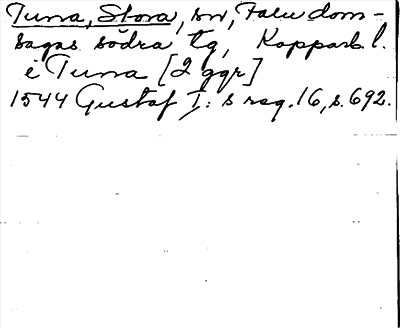 Tuna, Stora, sn, Falu dom-
sagas södra tg, Kopparb. l.
i Tuna [2 ggr]
1544 Gustaf I:s reg. 16, s. 692.